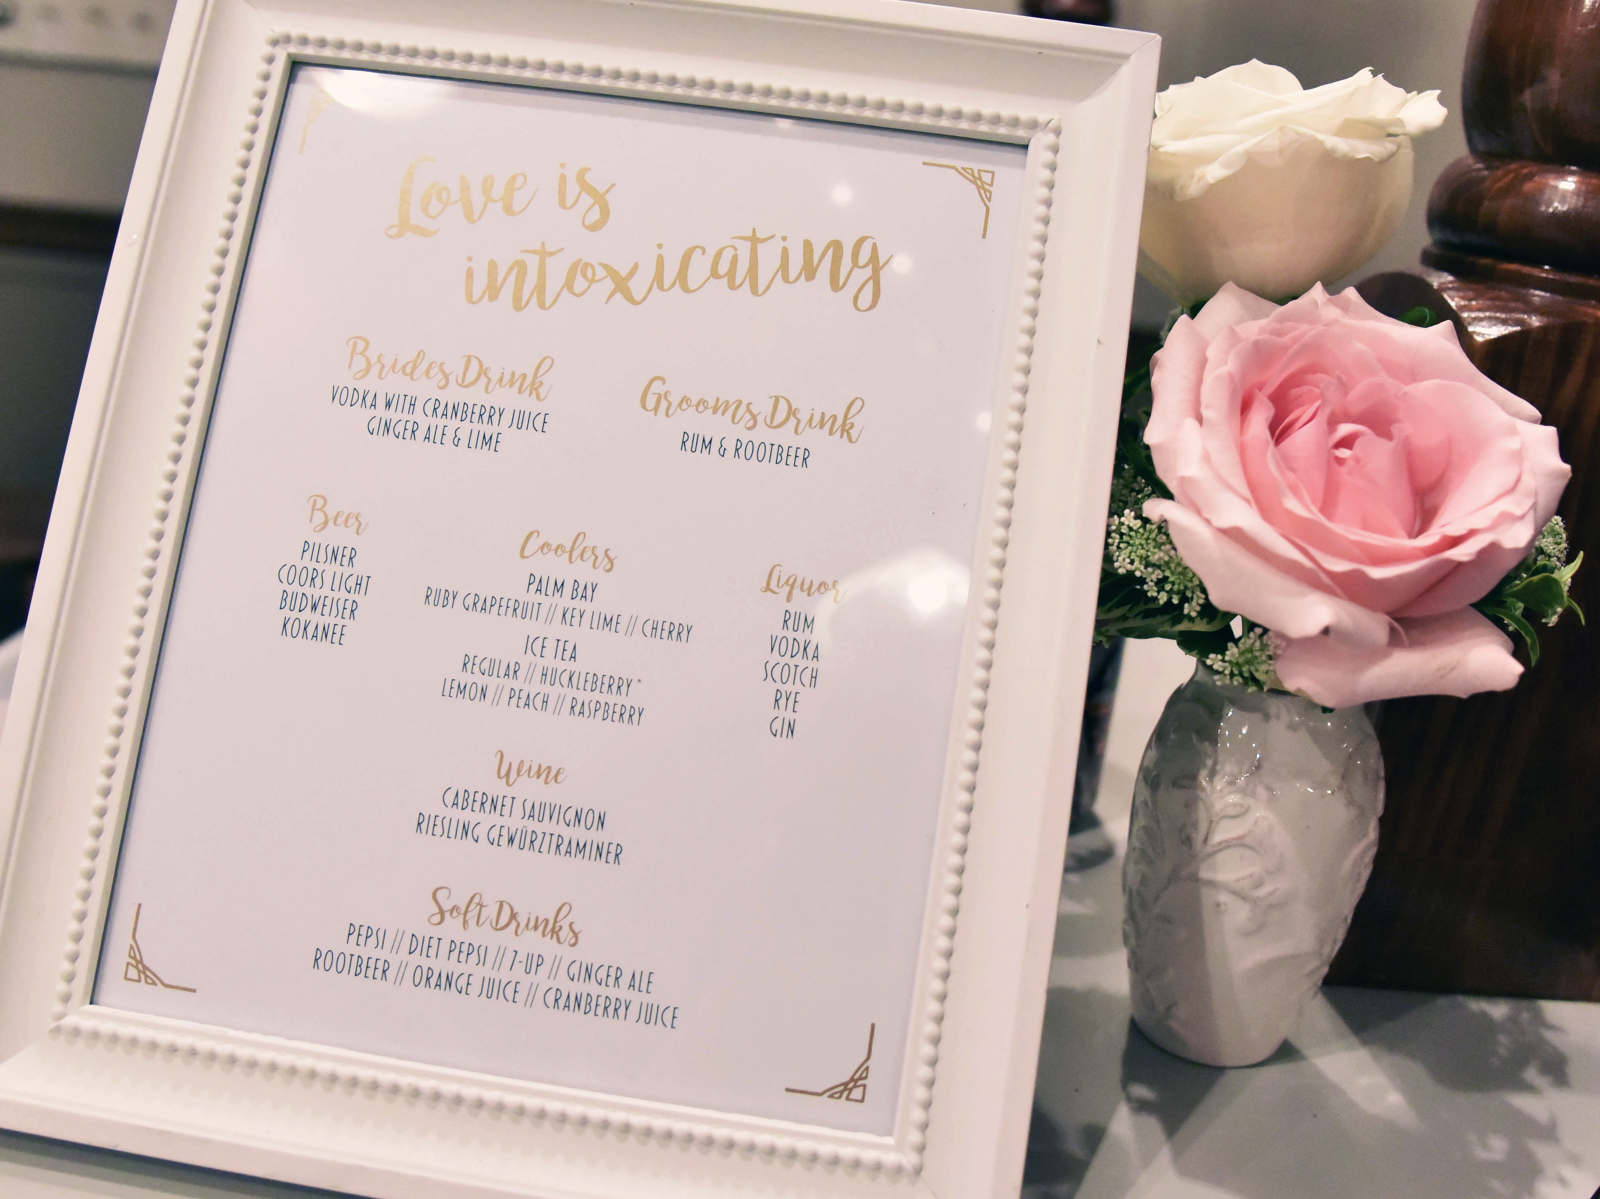 Love is
intoxicating
Brides Drink
VODKA WITH CRANBERRY JUICE
GINGER ALE & LIME
Grooms Drink
RUM & ROOTBEER
Beer
PILSNER
COORS LIGHT
BUDWEISER
KOKANEE
Coolers
PALM BAY
RUBY GRAPEFRUIT // KEY LIME // CHERRY
ICE TEA
REGULAR // HUCKLEBERRY *
LEMON // PEACH // RASPBERRY
Liquor
RUM
VODKA
SCOTCH
RYE
GIN
Wine
CABERNET SAUVIGNON
RIESLING GEWÜRZTRAMINER
Soft Drinks
PEPSI // DIET PEPSI // 7-UP // GINGER ALE
ROOTBEER // ORANGE JUICE // CRANBERRY JUICE